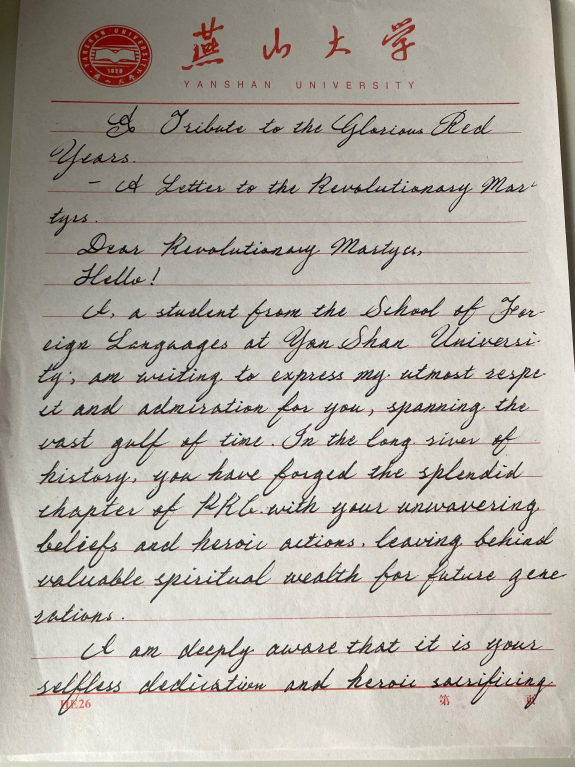 YANSHAN UNIVERSITY
1920
燕山大学
YANSHAN UNIVERSITY
A Tribute to the Glorious Red
Years.
- A Letter to the Revolutionary Mar-
tyrs.
Dear Revolutionary Martyrs,
Hello!
I, a student from the School of For-
eign Languages at Yan Shan Universi-
ty, am writing to express my utmost respe-
ct and admiration for you, spanning the
vast gulf of time. In the long river of
history, you have forged the splendid
chapter of PRC with your unwavering
beliefs and heroic actions, leaving behind
valuable spiritual wealth for future gene-
rations.
I am deeply aware that it is your
selfless dedication and heroic sacrificing
HE26
第 页